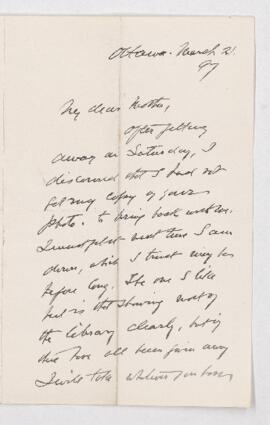 Ottawa. March 21.
97
My dear Mother,
After getting
away on Saturday, I
discovered that I had not
got my copy of your
photo. to bring back with me.
I must get it next time I am
down, which I trust may be
before long. The one I like
best is that showing most of
the library clearly, but if
they have all been given away
I will take whatever you have